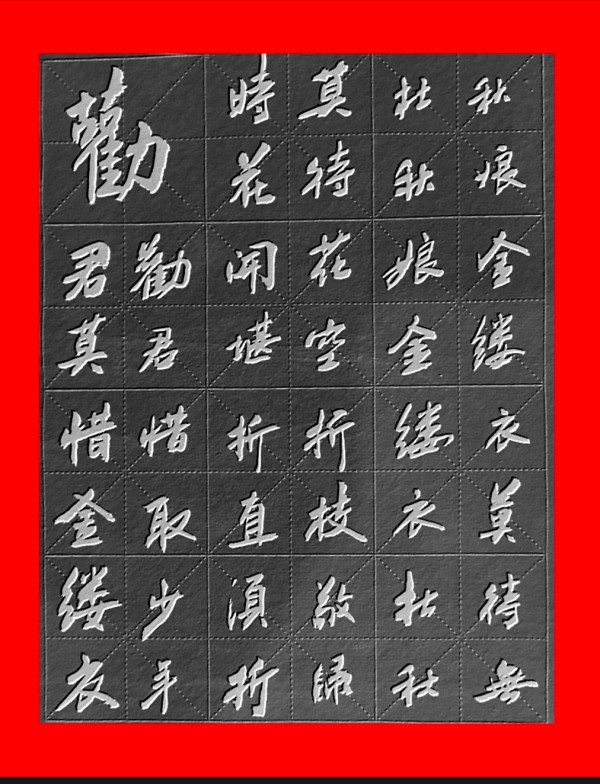 勸君莫惜金缕衣
勸君惜取少年
時花開堪折直須折
莫待花空折枝敬歸
杜秋娘金缕衣杜秋
秋娘金缕衣莫待無